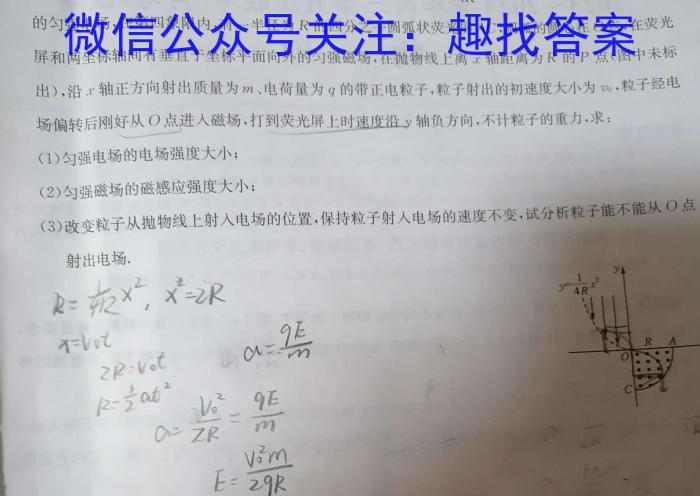 微信公众号关注：趣找答案
屏和两坐标轴间有垂直于坐标平面向外的匀强磁场,在抛物线上离 x 轴距离为 R 的 P 点(图中未标
出),沿 x 轴正方向射出质量为 m、电荷量为 q 的带正电粒子,粒子射出的初速度大小为 v₀,粒子经电
场偏转后刚好从 O 点进入磁场,打到荧光屏上时速度沿 y 轴负方向,不计粒子的重力,求:
(1)匀强电场的电场强度大小;
(2)匀强磁场的磁感应强度大小;
(3)改变粒子从抛物线上射入电场的位置,保持粒子射入电场的速度不变,试分析粒子能不能从 O 点
射出电场.
y
y=1/4R x²
O R A
C
x²=2R
x=v₀t
2R=v₀t
R=½at²
a=qE/m
a=v₀²/2R=qE/m
E=v₀²m/2qR